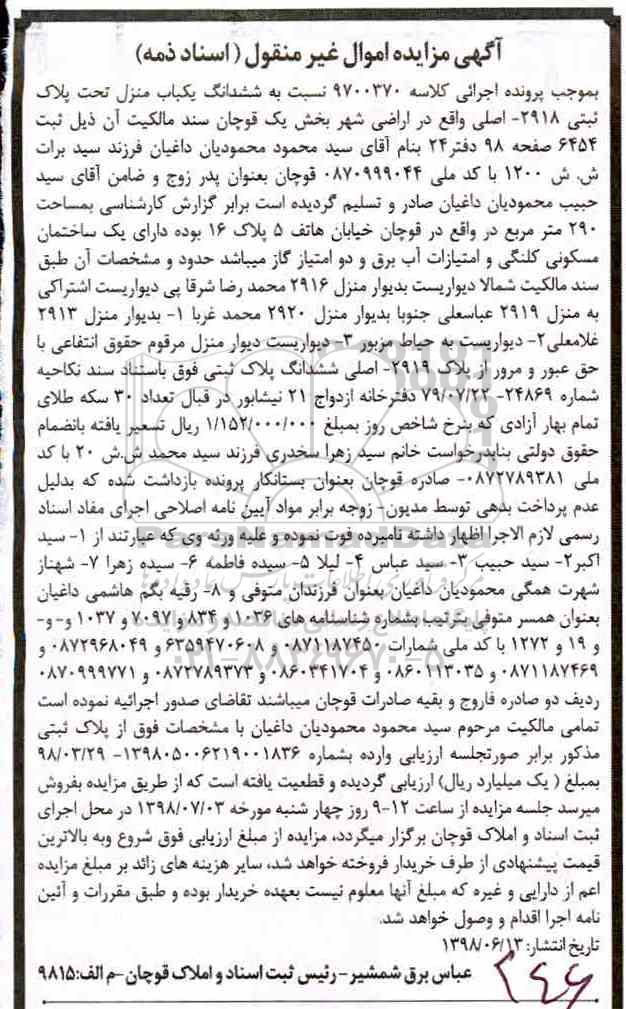 آگهی مزایده اموال غیر منقول (اسناد ذمه)
بموجب پرونده اجرائی کلاسه ۹۷۰۰۳۷۰ نسبت به ششدانگ یکباب منزل تحت پلاک
ثبتی ۲۹۱۸- اصلی واقع در اراضی شهر بخش یک قوچان سند مالکیت آن ذیل ثبت
۶۴۵۴ صفحه ۹۸ دفتر۲۴ بنام آقای سید محمود محمودیان داغیان فرزند سید برات
ش. ش ۱۲۰۰ با کد ملی ۰۸۷۰۹۹۹۰۴۴ قوچان بعنوان پدر زوج و ضامن آقای سید
حبیب محمودیان داغیان صادر و تسلیم گردیده است برابر گزارش کارشناسی بمساحت
۲۹۰ متر مربع در واقع در قوچان خیابان هاتف ۵ پلاک ۱۶ بوده دارای یک ساختمان
مسکونی کلنگی و امتیازات آب برق و دو امتیاز گاز میباشد حدود و مشخصات آن طبق
سند مالکیت شمالا دیواریست بدیوار منزل ۲۹۱۶ محمد رضا شرقا پی دیواریست اشتراکی
به منزل ۲۹۱۹ عباسعلی جنوبا بدیوار منزل ۲۹۲۰ محمد غربا ۱- بدیوار منزل ۲۹۱۳
غلامعلی۲- دیواریست به حیاط مزبور ۳- دیواریست دیوار منزل مرقوم حقوق انتفاعی با
حق عبور و مرور از پلاک ۲۹۱۹- اصلی ششدانگ پلاک ثبتی فوق باستناد سند نکاحیه
شماره ۲۴۸۶۹- ۷۹/۰۷/۲۲ دفترخانه ازدواج ۲۱ نیشابور در قبال تعداد ۳۰ سکه طلای
تمام بهار آزادی که بنرخ شاخص روز بمبلغ ۱/۱۵۲/۰۰۰/۰۰۰ ریال تسعیر یافته بانضمام
حقوق دولتی بنابدرخواست خانم سید زهرا سخدری فرزند سید محمد ش.ش ۲۰ با کد
ملی ۰۸۷۲۷۸۹۳۸۱- صادره قوچان بعنوان بستانکار پرونده بازداشت شده که بدلیل
عدم پرداخت بدهی توسط مدیون- زوجه برابر مواد آیین نامه اصلاحی اجرای مفاد اسناد
رسمی لازم الاجرا اظهار داشته نامبرده فوت نموده و علیه ورثه وی که عبارتند از ۱- سید
اکبر۲- سید حبیب ۳- سید عباس ۴- لیلا ۵- سیده فاطمه ۶- سیده زهرا ۷- شهناز
شهرت همگی محمودیان داغیان بعنوان فرزندان متوفی و ۸- رقیه بگم هاشمی داغیان
بعنوان همسر متوفی بترتیب بشماره شناسنامه های ۱۰۳۶ و ۸۳۴ و ۷۰۹۷ و ۱۰۳۷ و- و-
و ۱۹ و ۱۲۷۲ با کد ملی شمارات ۰۸۷۱۱۸۷۴۵۰ و ۶۳۵۹۴۷۰۶۰۸ و ۰۸۷۲۹۶۸۰۴۹ و
۰۸۷۱۱۸۷۴۶۹ و ۰۸۶۰۱۱۳۰۳۵ و ۰۸۶۰۳۴۱۷۰۴ و ۰۸۷۲۷۸۹۳۷۳ و ۰۸۷۰۹۹۹۷۷۱
ردیف دو صادره فاروج و بقیه صادرات قوچان میباشند تقاضای صدور اجرائیه نموده است
تمامی مالکیت مرحوم سید محمود محمودیان داغیان با مشخصات فوق از پلاک ثبتی
مذکور برابر صورتجلسه ارزیابی وارده بشماره ۱۳۹۸۰۵۰۰۶۲۱۹۰۰۱۸۳۶- ۹۸/۰۳/۲۹
بمبلغ ( یک میلیارد ریال) ارزیابی گردیده و قطعیت یافته است که از طریق مزایده بفروش
میرسد جلسه مزایده از ساعت ۱۲-۹ روز چهار شنبه مورخه ۱۳۹۸/۰۷/۰۳ در محل اجرای
ثبت اسناد و املاک قوچان برگزار میگردد، مزایده از مبلغ ارزیابی فوق شروع وبه بالاترین
قیمت پیشنهادی از طرف خریدار فروخته خواهد شد، سایر هزینه های زائد بر مبلغ مزایده
اعم از دارایی و غیره که مبلغ آنها معلوم نیست بعهده خریدار بوده و طبق مقررات و آئین
نامه اجرا اقدام و وصول خواهد شد.
تاریخ انتشار: ۱۳۹۸/۰۶/۱۳
عباس برق شمشیر - رئیس ثبت اسناد و املاک قوچان -م الف:۹۸۱۵